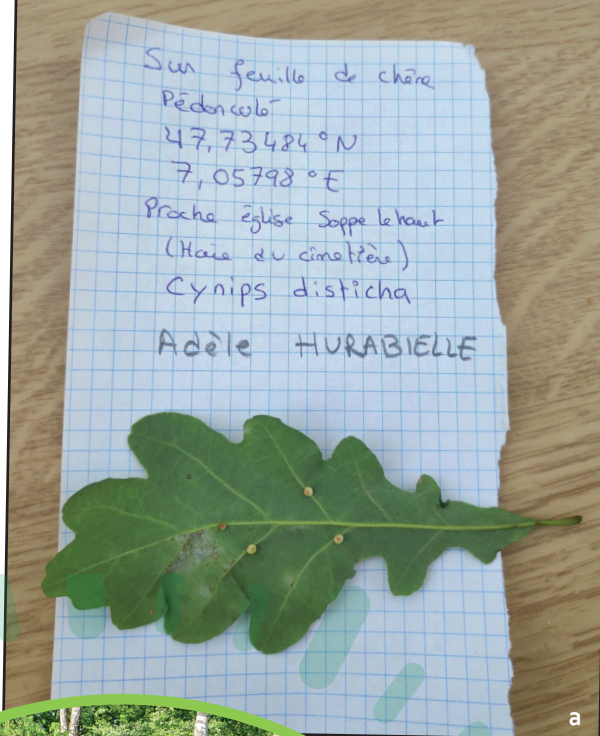 Sur feuille de chêne
Pédonculé
47,73484°N
7,05798°E
Proche église Soppe le haut
(Haie du cimetière)
Cynips disticha
Adèle HURABIELLE
a